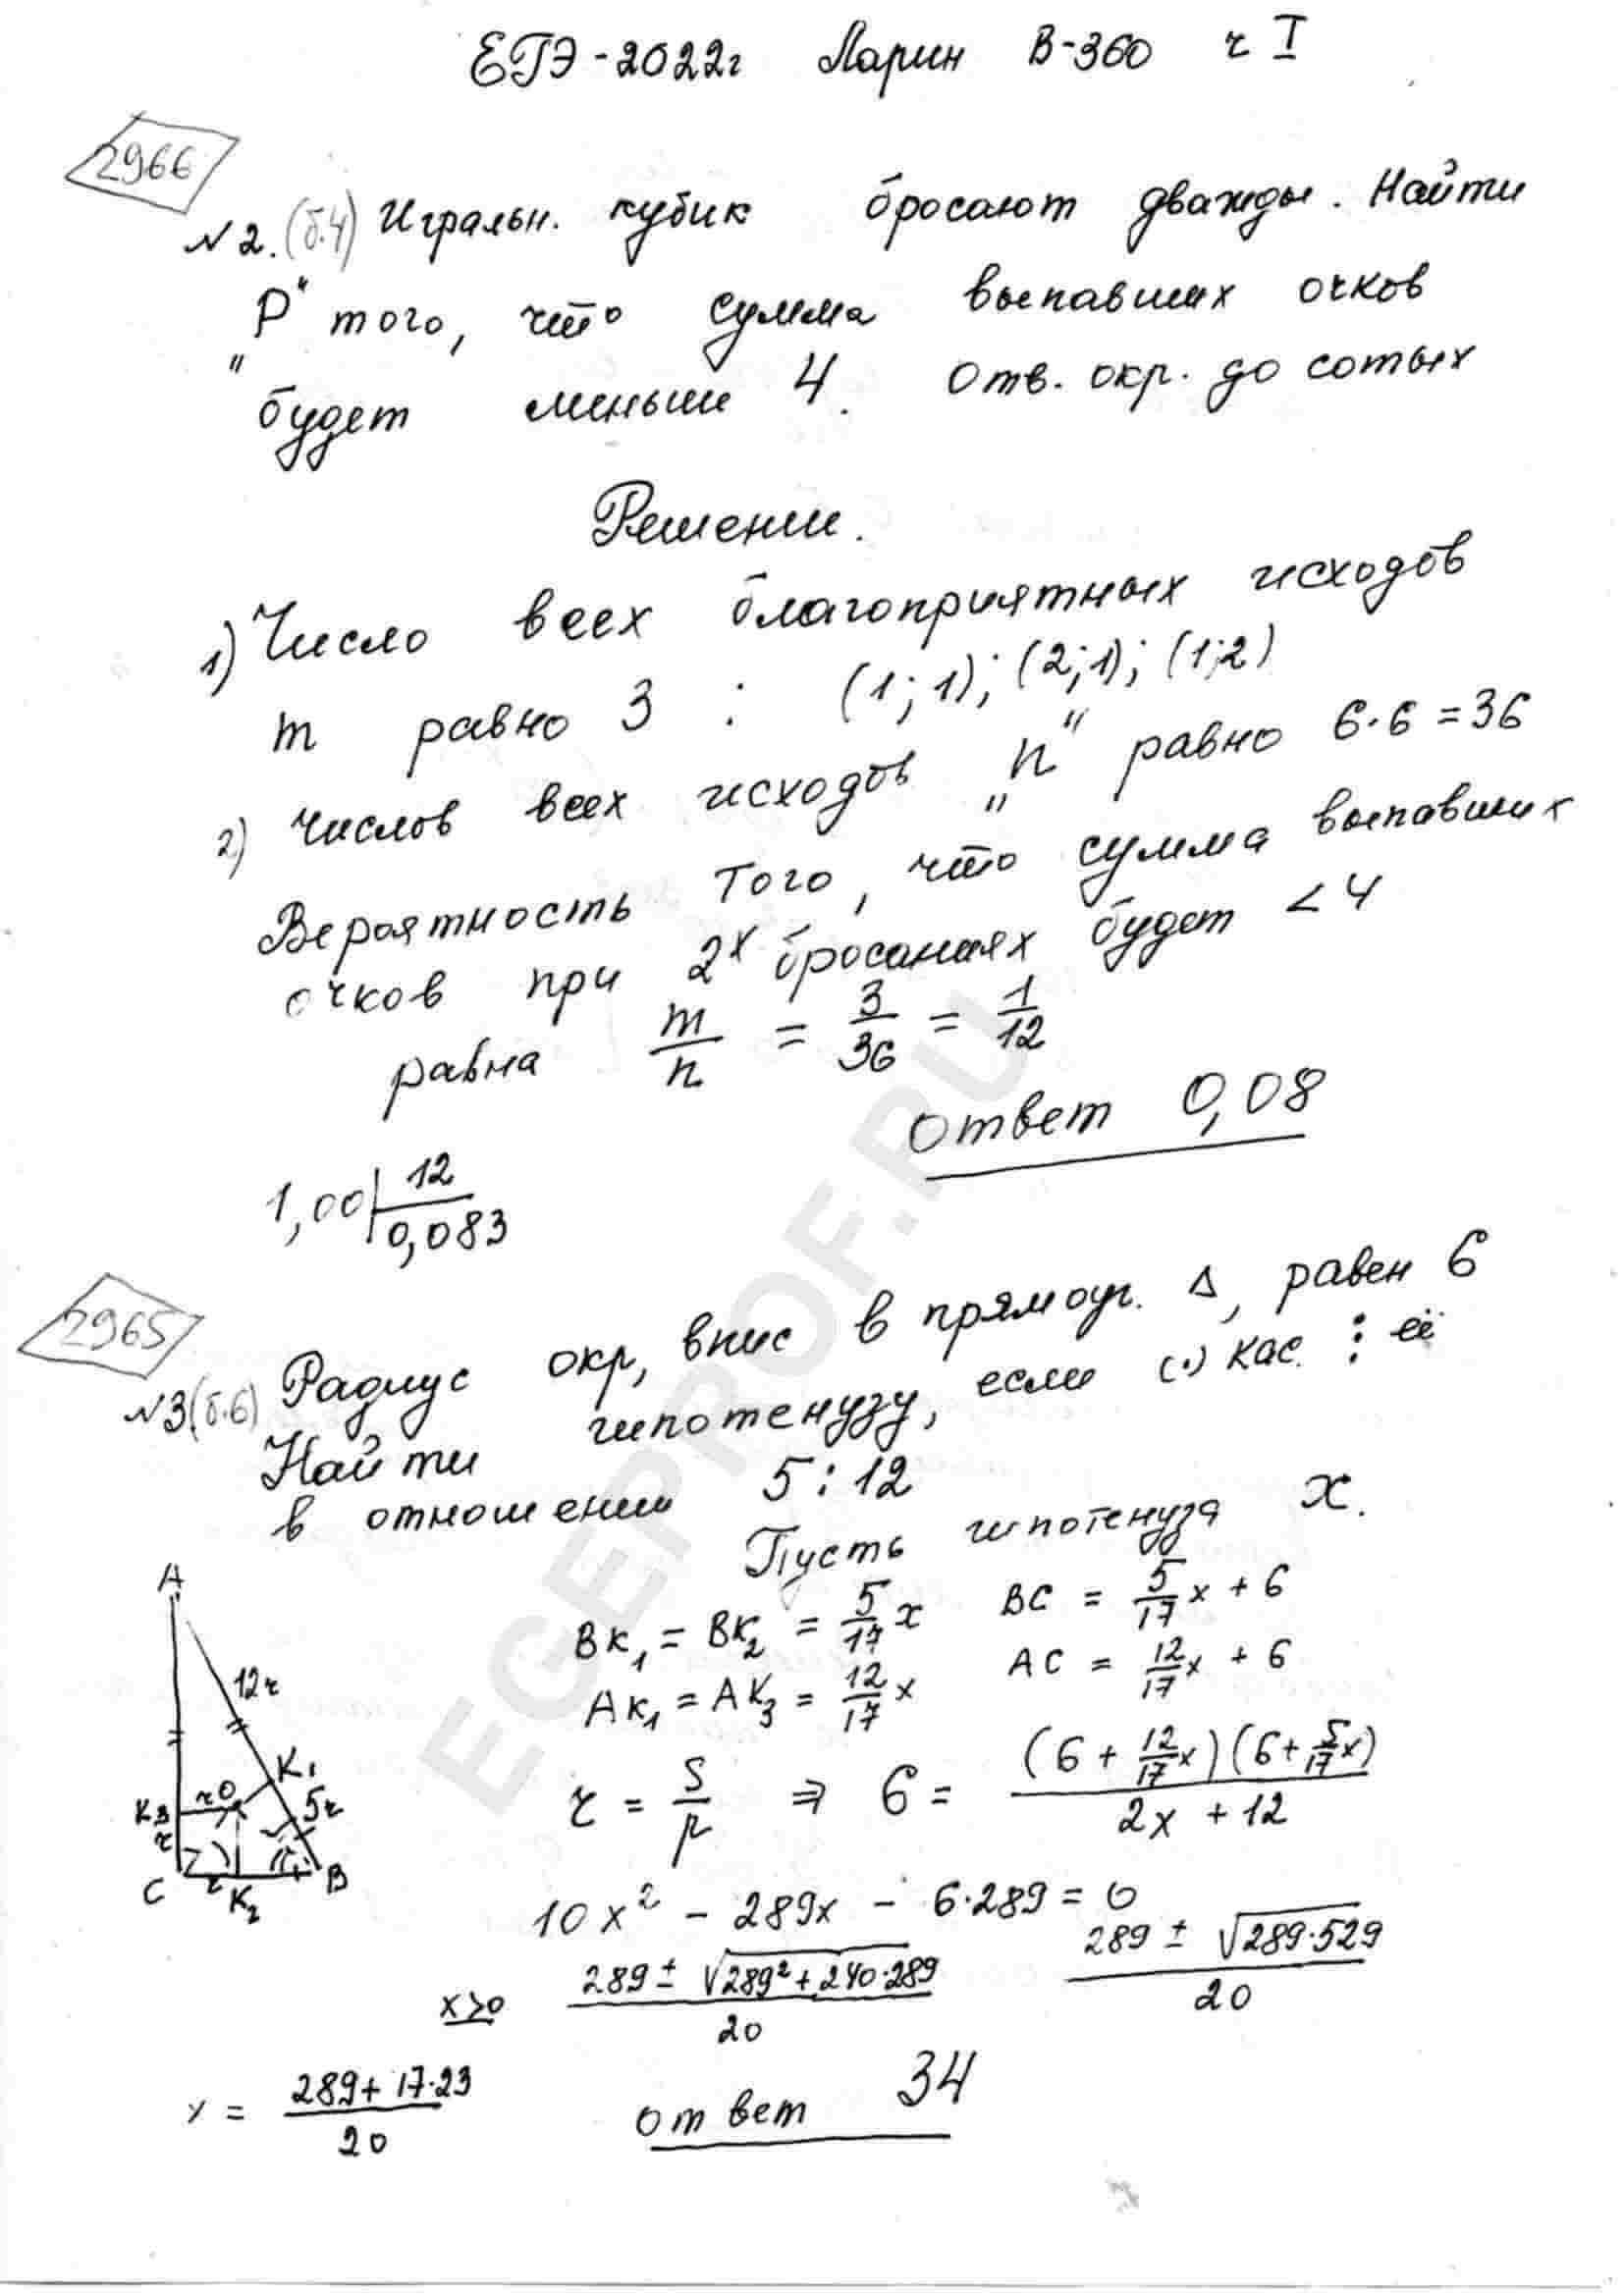 ЕГЭ-2022г Ларин В-360 ч I
2966
№2. (б.4) Игральн. кубик бросают дважды. Найти
"P" того, что сумма выпавших очков
будет меньше 4. Отв. окр. до сотых
Решение.
1) Число всех благоприятных исходов
m равно 3 : (1; 1); (2; 1); (1; 2)
2) числов всех исходов „n" равно 6·6 = 36
Вероятность того, что сумма выпавших
очков при 2х бросаниях будет < 4
равна m/n = 3/36 = 1/12
ответ 0,08
1,00 | 12
0,083
2965
№3 (б.6) Радиус окр, впис в прямоуг. Δ, равен 6
Найти гипотенузу, если (·) кас. : её
в отношении 5 : 12
Пусть гипотенуза x.
BK₁ = BK₂ = 5/17 x BC = 5/17 x + 6
AK₁ = AK₃ = 12/17 x AC = 12/17 x + 6
r = S/p ⇒ 6 = (6 + 12/17 x)(6 + 5/17 x) / 2x + 12
A
12r
K₁
K₃ r O 5r
r
C r K₂ B
10x² - 289x - 6·289 = 0
x>0 289 ± √289² + 240·289 / 20 289 ± √289·529 / 20
x = 289 + 17·23 / 20 ответ 34
EGEPROF.RU